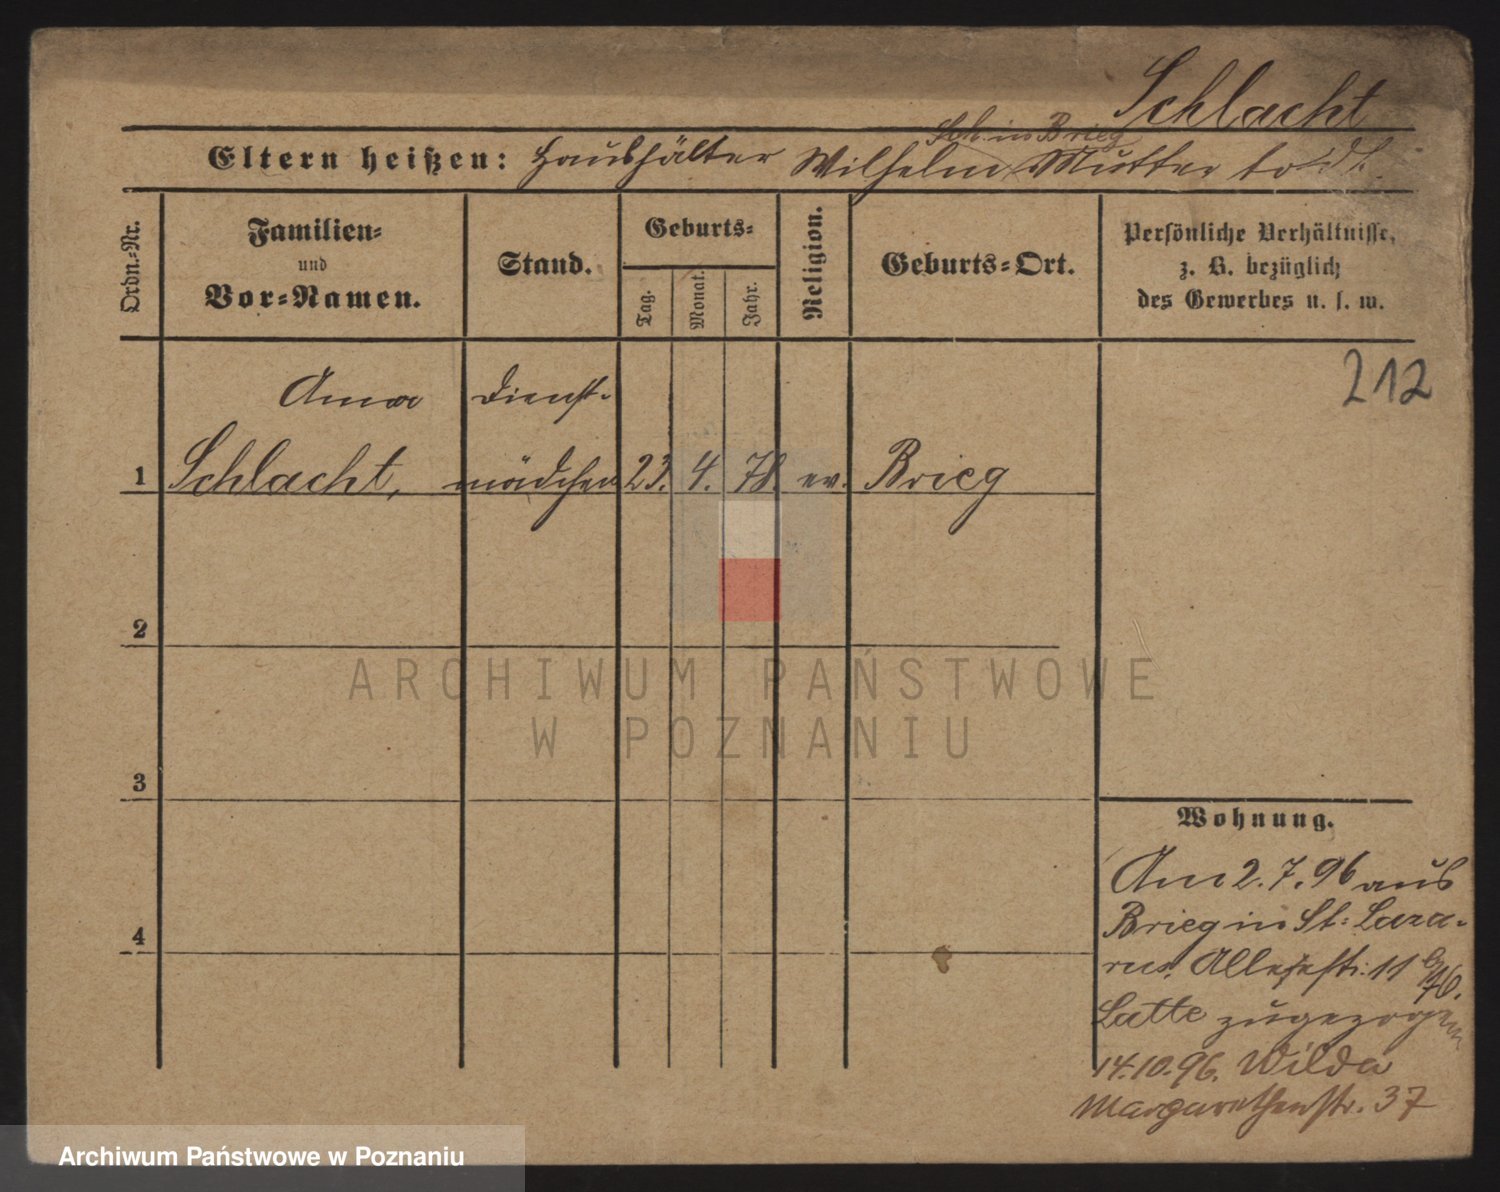 Schlacht
Sch. in Brieg
Eltern heißen: Haushälter Wilhelm Mutter todt.
Ordn.-Nr.
Familien-
und
Vor-Namen.
Stand.
Geburts-
Tag.
Monat.
Jahr.
Religion.
Geburts-Ort.
Persönliche Verhältnisse,
z. B. bezüglich
des Gewerbes u. s. w.
212
Anna Dienst-
1 Schlacht, mädchen 23. 4. 78. ev. Brieg
2
3
4
Wohnung.
Am 2.7.96 aus
Brieg in St: Laza-
rus, 11
Latte zugezogen
14.10.96. Wilda
Margarethenstr. 37
ARCHIWUM PAŃSTWOWE
W POZNANIU
Archiwum Państwowe w Poznaniu